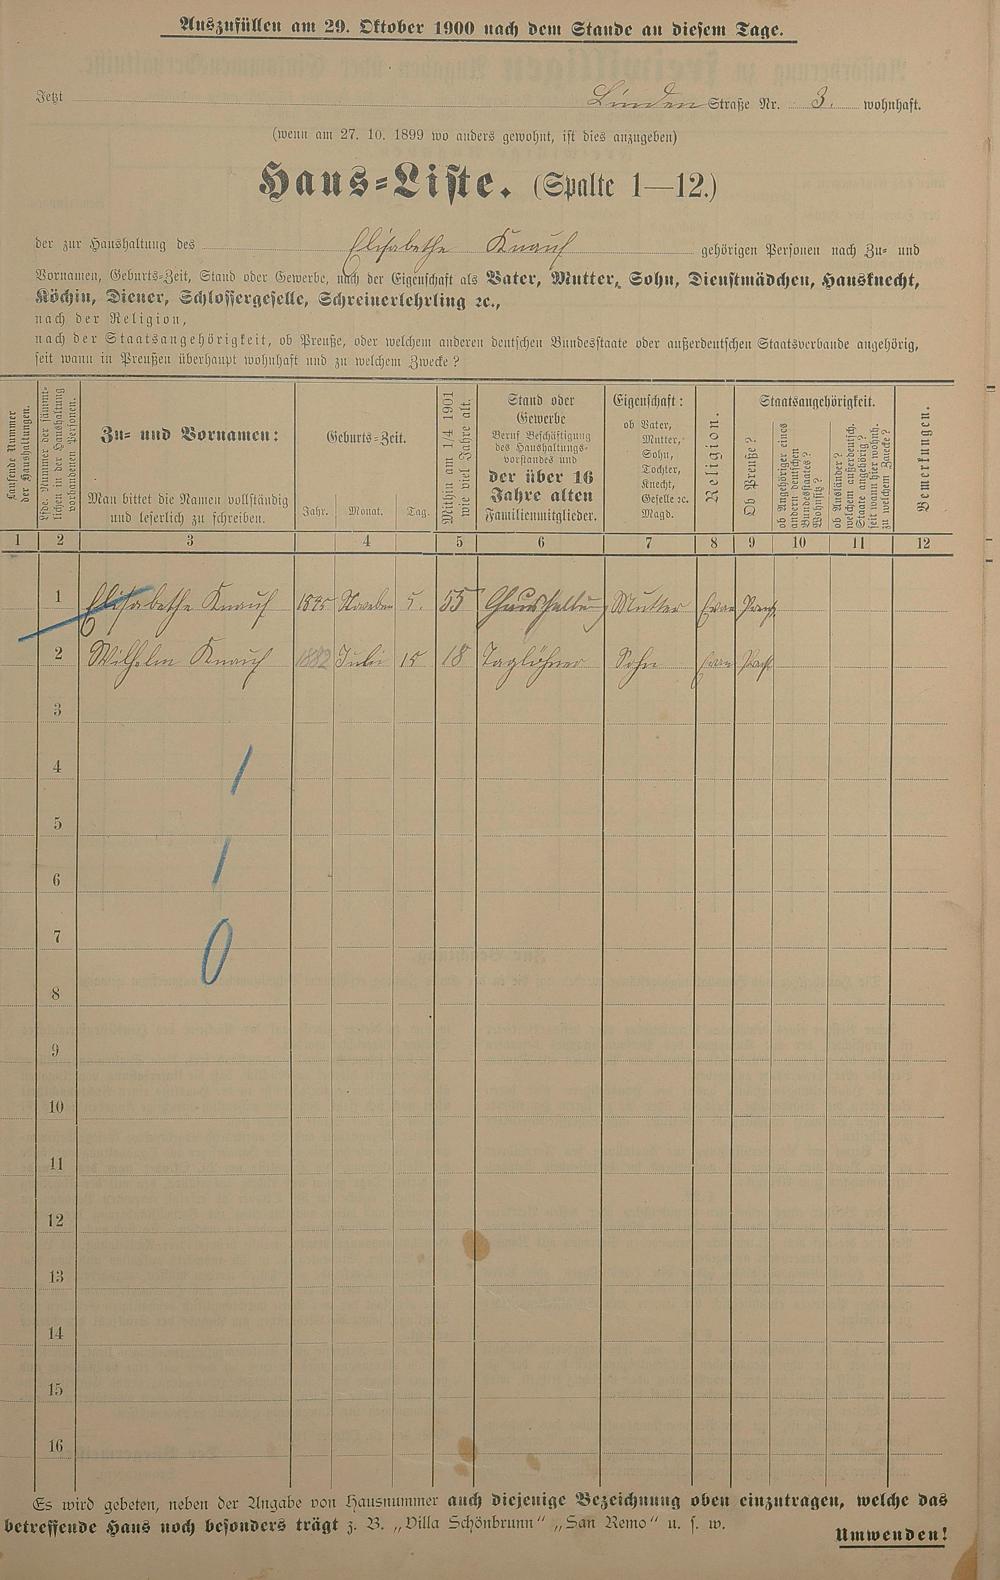 Auszufüllen am 29. Oktober 1900 nach dem Stande an diesem Tage.
Jetzt Linden Straße Nr. 3. wohnhaft.
(wenn am 27. 10. 1899 wo anders gewohnt, ist dies anzugeben)
Haus-Liste. (Spalte 1—12.)
der zur Haushaltung des Elisabethe Knauf gehörigen Personen nach Zu- und
Vornamen, Geburts-Zeit, Stand oder Gewerbe, nach der Eigenschaft als Vater, Mutter, Sohn, Dienstmädchen, Hausknecht,
Köchin, Diener, Schlossergeselle, Schreinerlehrling ꝛc.,
nach der Religion,
nach der Staatsangehörigkeit, ob Preuße, oder welchem anderen deutschen Bundesstaate oder außerdeutschen Staatsverbande angehörig,
seit wann in Preußen überhaupt wohnhaft und zu welchem Zwecke?
Laufende Nummer
der Haushaltungen.
Lfde. Nummer der sämmt-
lichen in der Haushaltung
vorhandenen Personen.
Zu- und Vornamen:
Man bittet die Namen vollständig
und leserlich zu schreiben.
Geburts-Zeit.
Jahr. Monat. Tag.
Mithin am 1/4 1901
wie viel Jahre alt.
Stand oder
Gewerbe
Beruf Beschäftigung
des Haushaltungs-
vorstandes und
der über 16
Jahre alten
Familienmitglieder.
Eigenschaft:
ob Vater,
Mutter,
Sohn,
Tochter,
Knecht,
Geselle ꝛc.
Magd.
Religion.
Staatsangehörigkeit.
Ob Preuße?
ob Angehöriger eines
andern deutschen
Bundesstaates?
Wohnsitz?
ob Ausländer?
welchem außerdeutsch.
Staate angehörig?
seit wann hier wohnh.
zu welchem Zwecke?
Bemerkungen.
1 2 3 4 5 6 7 8 9 10 11 12
1 Elisabethe Knauf 1845 November 5. 55 Haushaltung Mutter Evan
2 Wilhelm Knauf 1882 Juli 15 18 Taglöhner Sohn Evan
3
4
5
6
7
8
9
10
11
12
13
14
15
16
Es wird gebeten, neben der Angabe von Hausnummer auch diejenige Bezeichnung oben einzutragen, welche das
betreffende Haus noch besonders trägt z. B. „Villa Schönbrunn" „San Remo" u. s. w.
Umwenden!